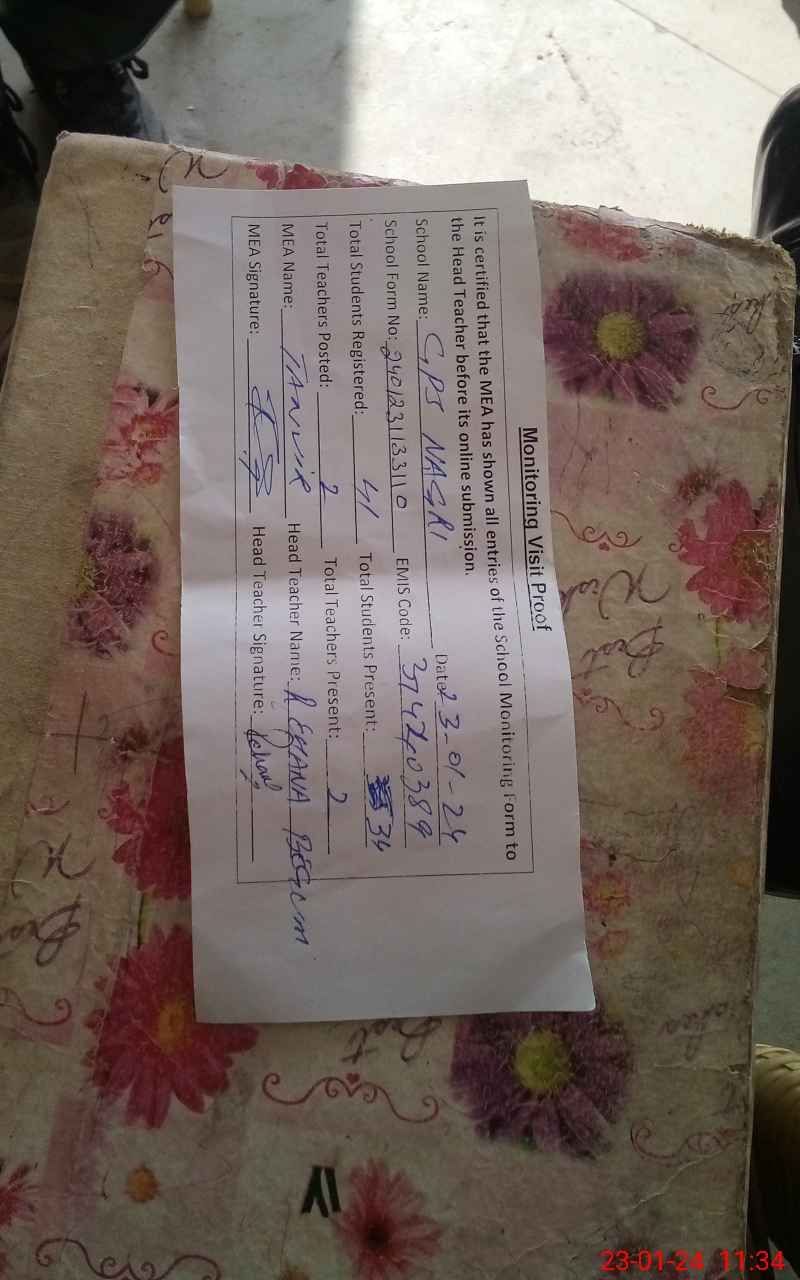 Monitoring Visit Proof
It is certified that the MEA has shown all entries of the School Monitoring Form to
the Head Teacher before its online submission.
School Name: GPS NAGRI Date 23-01-24
School Form No: 2401231133110 EMIS Code: 37470389
Total Students Registered: 41 Total Students Present: 34
Total Teachers Posted: 2 Total Teachers Present: 2
MEA Name: TANVIR Head Teacher Name: REHANA BEGUM
MEA Signature: Head Teacher Signature:
Best
Best
Best
23-01-24 11:34